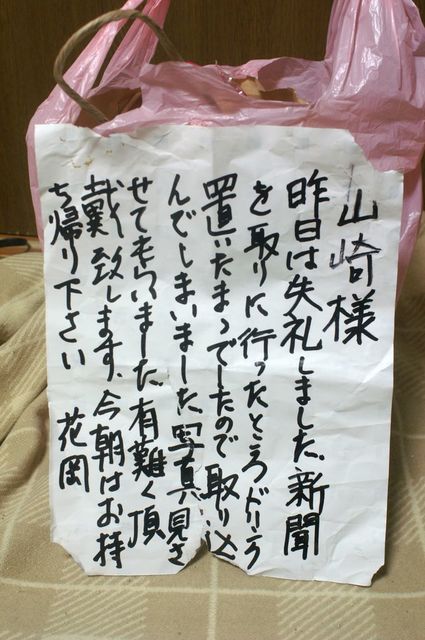 山崎様
昨日は失礼しました、新聞
を取りに行ったところ
置いたまゝでしたので取り込
んでしまいました、写真見さ
せてもらいました、有難く頂
戴致します、今朝はお持
ち帰り下さい 花岡